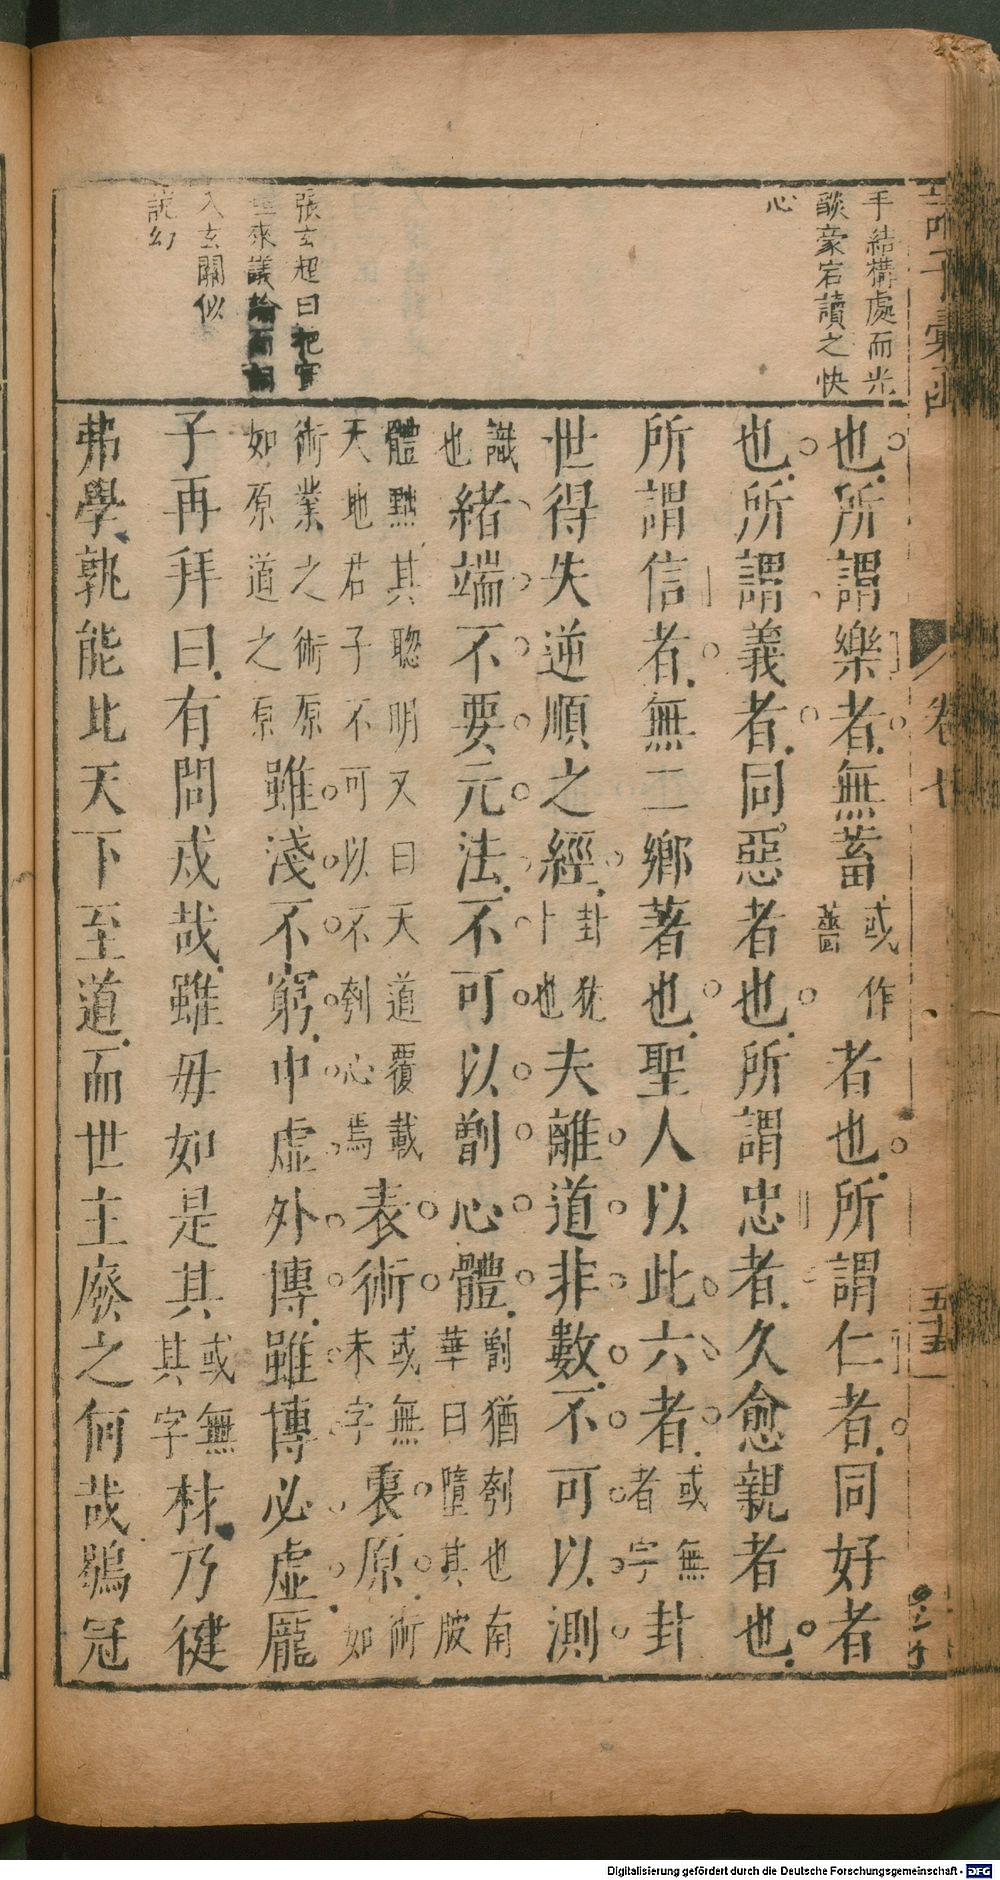 手結構處而光
燄豪宕讀之快
心
張玄超曰
來議
入玄關似
說幻
也所謂樂者無蓄或作薔者也所謂仁者同好者
也所謂義者同惡者也所謂忠者久愈親者也
所謂信者無二鄉著也聖人以此六者或無者字卦
世得失逆順之經卦犹卜也夫離道非數不可以測
識也緒端不要元法不可以劀心體劀猶刳也南華曰墮其肢
體黜其聰明又曰天道覆載天地君子不可以不刳心焉表術或無未字裏原術如
術業之術原如原道之原雖淺不窮中虛外博雖博必虛龐
子再拜曰有問戍哉雖毋如是其或無其字材乃健
弗學孰能比天下至道而世主廢之何哉鶡冠
卷七
五十五
Digitalisierung gefördert durch die Deutsche Forschungsgemeinschaft - DFG